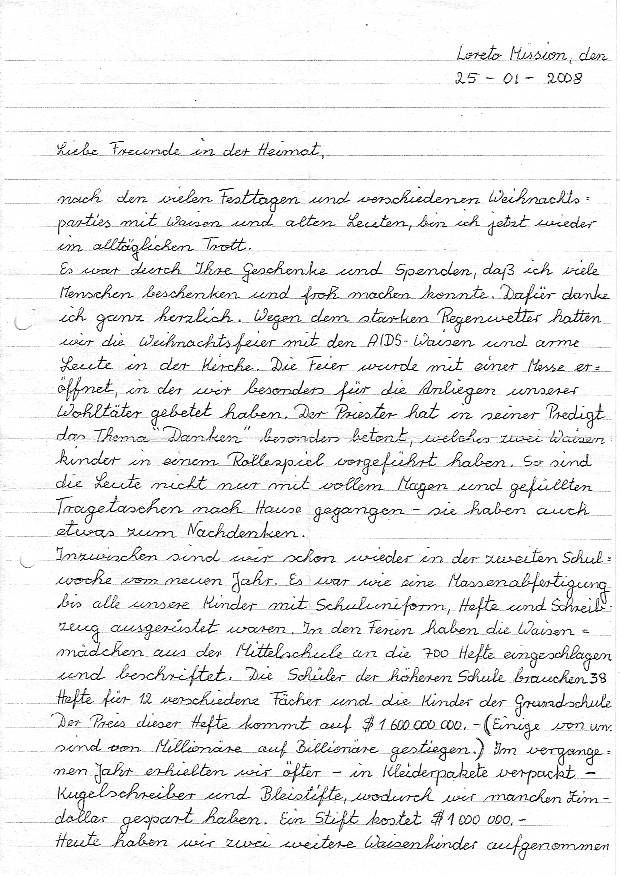 Loreto Mission, den
25 - 01 - 2008
Liebe Freunde in der Heimat,
nach den vielen Festtagen und verschiedenen Weihnachts=
parties mit Waisen und alten Leuten, bin ich jetzt wieder
im alltäglichen Trott.
Es war durch Ihre Geschenke und Spenden, daß ich viele
Menschen beschenken und froh machen konnte. Dafür danke
ich ganz herzlich. Wegen dem starken Regenwetter hatten
wir die Weihnachtsfeier mit den AIDS-Waisen und arme
Leute in der Kirche. Die Feier wurde mit einer Messe er=
öffnet, in der wir besonders für die Anliegen unserer
Wohltäter gebetet haben. Der Priester hat in seiner Predigt
das Thema "Danken" besonders betont, welches zwei Waisen
kinder in einem Rollespiel vorgeführt haben. So sind
die Leute nicht nur mit vollem Magen und gefüllten
Tragetaschen nach Hause gegangen - sie haben auch
etwas zum Nachdenken.
Inzwischen sind wir schon wieder in der zweiten Schul=
woche vom neuen Jahr. Es war wie eine Massenabfertigung
bis alle unsere Kinder mit Schuluniform, Hefte und Schreib=
zeug ausgerüstet waren. In den Ferien haben die Waisen =
mädchen aus der Mittelschule an die 700 Hefte eingeschlagen
und beschriftet. Die Schüler der höheren Schule brauchen 38
Hefte für 12 verschiedene Fächer und die Kinder der Grundschule
Der Preis dieser Hefte kommt auf $ 1 600 000 000.- (Einige von un
sind von Millionäre auf Billionäre gestiegen.) Im vergange=
nen Jahr erhielten wir öfter - in Kleiderpakete verpackt -
Kugelschreiber und Bleistifte, wodurch wir manchen Zim-
dollar gespart haben. Ein Stift kostet $ 1 000 000.-
Heute haben wir zwei weitere Waisenkinder aufgenommen